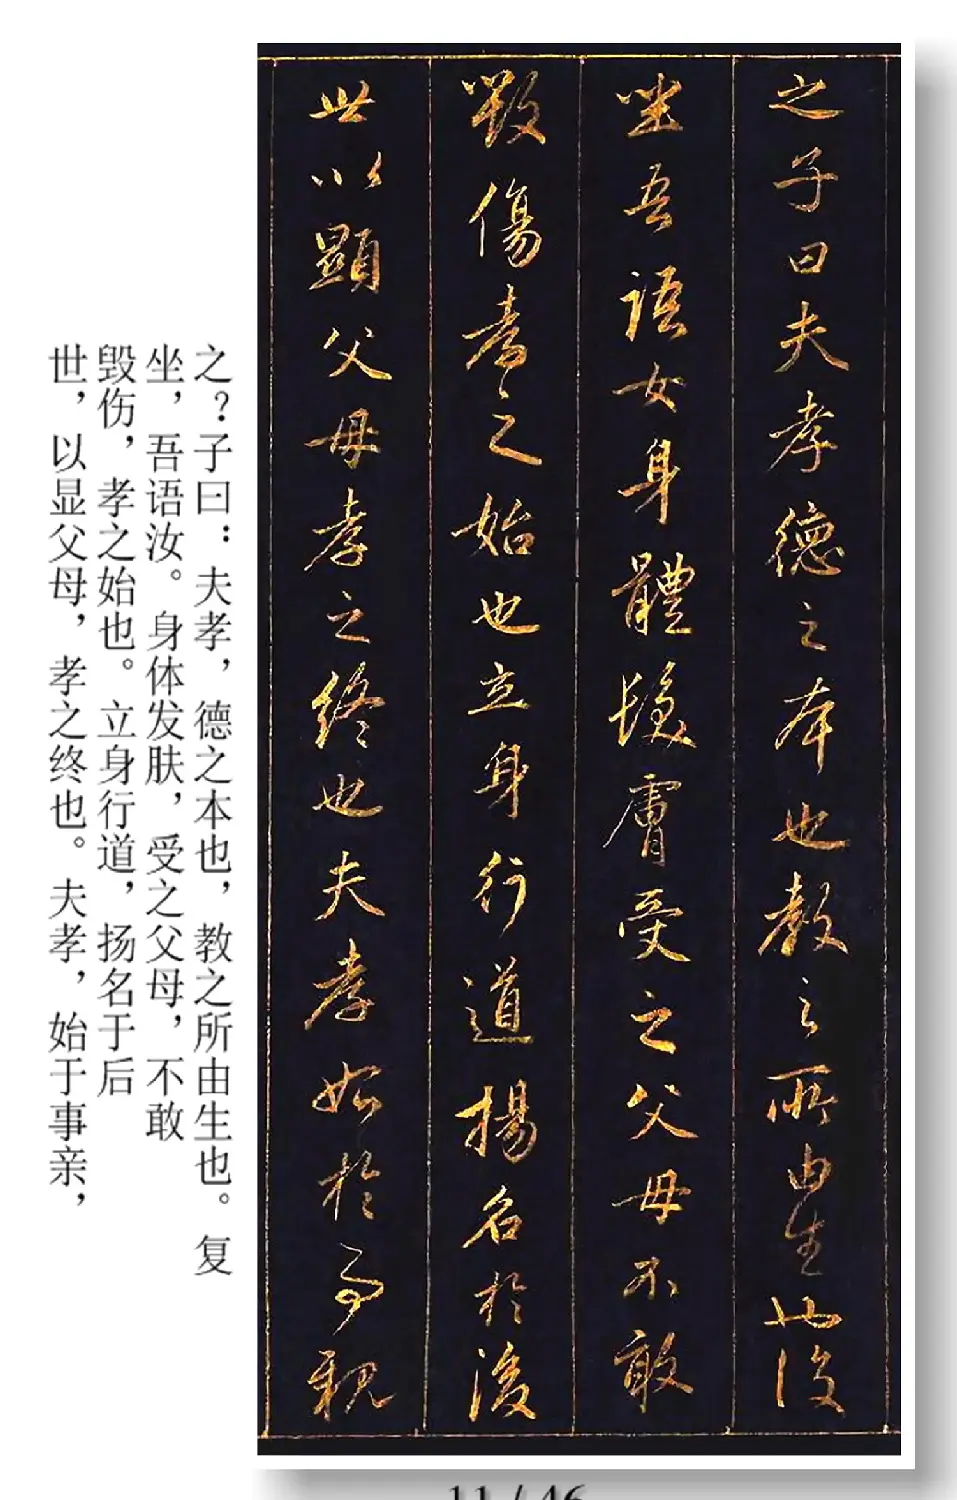 之子曰夫孝德之本也教之所由生也復
坐吾語女身體髮膚受之父母不敢
毀傷孝之始也立身行道揚名於後
世以顯父母孝之終也夫孝始於事親
之？子曰：夫孝，德之本也，教之所由生也。复
坐，吾语汝。身体发肤，受之父母，不敢
毁伤，孝之始也。立身行道，扬名于后
世，以显父母，孝之终也。夫孝，始于事亲，
11 / 46